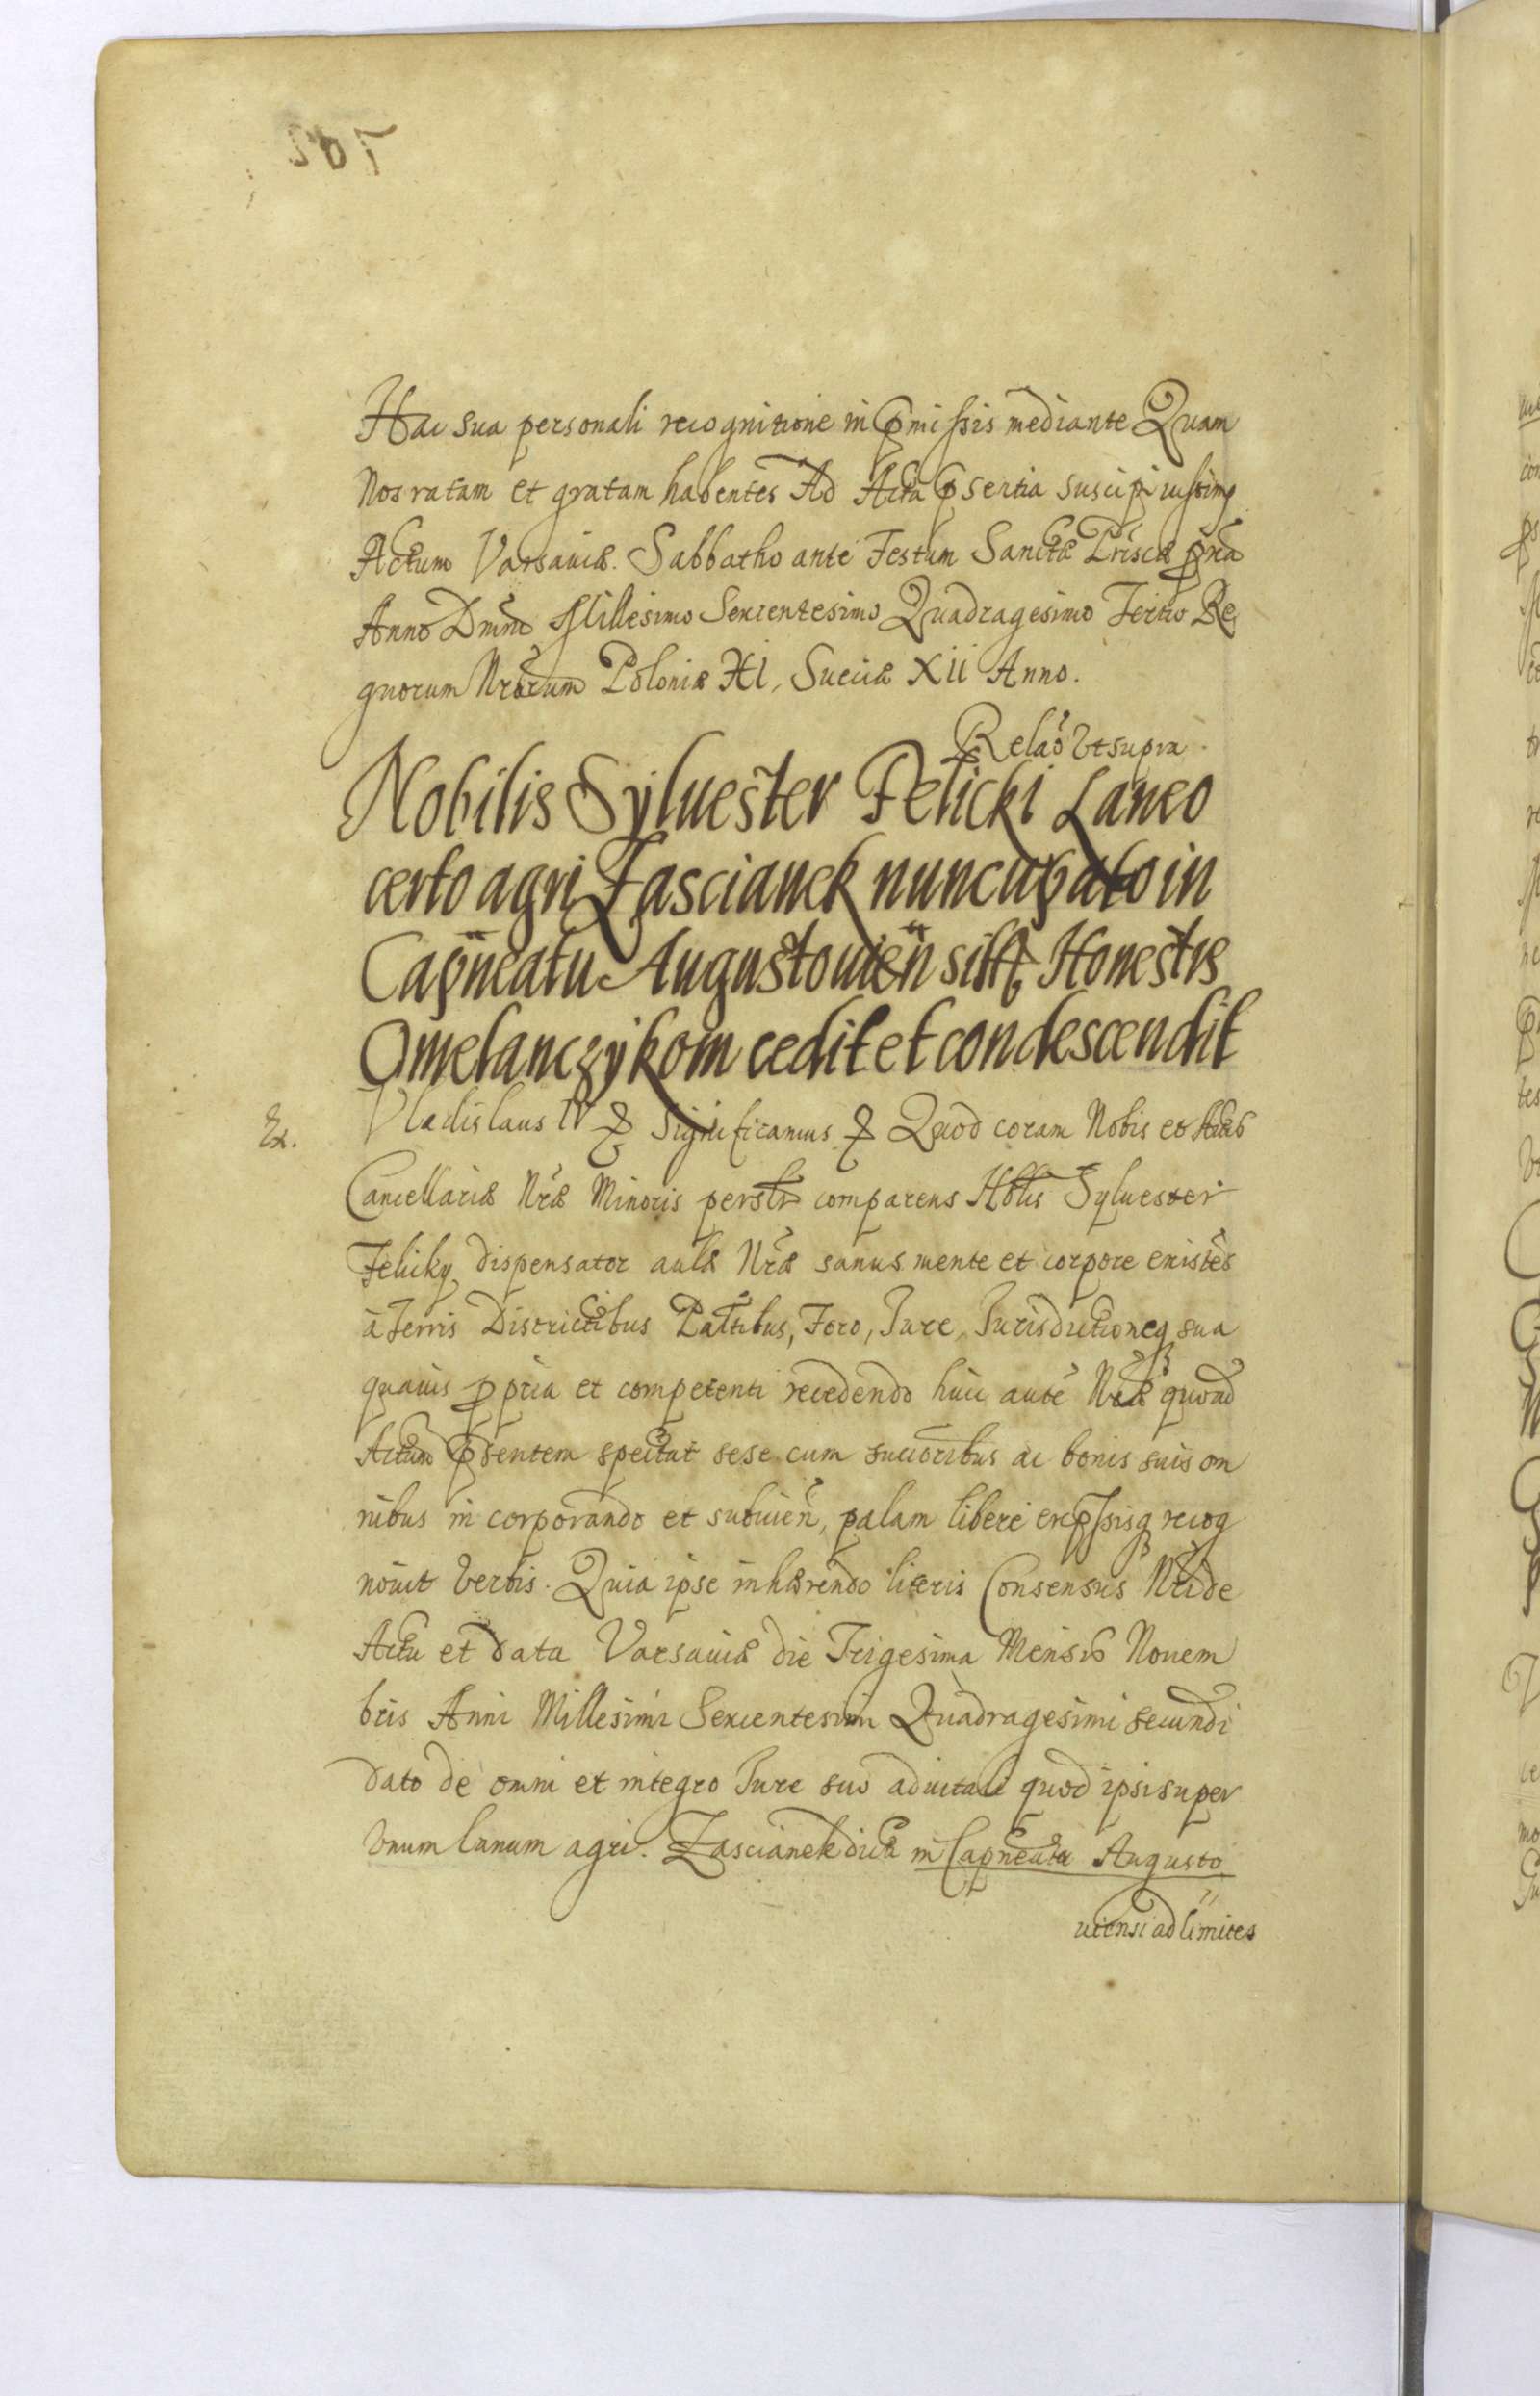 Hac sua personali recognitione in p̄missis mediante Quam
Nos ratam et gratam habentes Ad Acta p̄sentia suscipi iussimq
Actum Varsaviæ. Sabbatho ante Festum Sanctæ Priscæ
Anno Dnini Millesimo Sexcentesimo Quadragesimo Tertio Re
gnorum Nrōrum Poloniæ XI, Sueciæ XII Anno.
Relaō Vt supra.
Nobilis Sylvester Felicki Laneo
certo agri Zascianek nuncupato in
Capneatu Augustouien̄ sitt Honestis
Omelanczykom cedit et condescendit
Ex.
Vladislaus IV Significamus Quod coram Nobis et Actis
Cancellariæ Nrǣ Minoris persłr comparens Nblis Sylvester
Felicky dispensator aulæ Nrǣ sanus mente et corpore existēs
à Terris Districtibus Pałtibus, Foro, Jure, Jurisdictioneq sua
quavis ppria et competenti recedendo huic autē Nrǣ quoad
Actum p̄sentem spectat sese cum succoribus ac bonis suis om
nibus incorporando et subiicien̄, palam libere exp̄ssisq recog
novit verbis. Quia ipse inhærendo literis Consensus Nri de
Actu et data Varsaviæ die Trigesima Mensis Novem
bris Anni Millesimi Sexcentesimi Quadragesimi secundi
dato de omni et integro Jure suo advitali quod ipsi super
Vnum lanum agri. Zascianek dictū in Capneatu Augusto
viensi ad limites